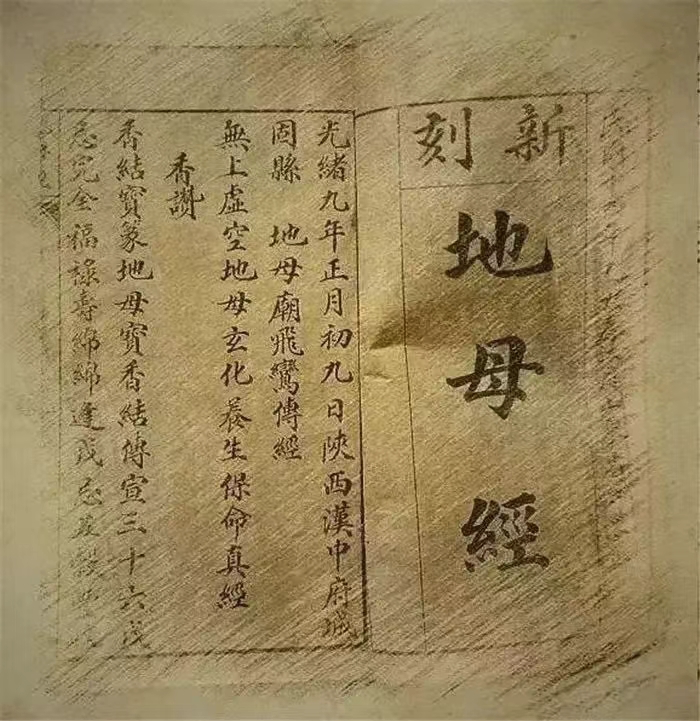 新刻
地母經
光緒九年正月初九日陝西漢中府城
固縣 地母廟飛鸞傳經
無上虛空地母玄化養生保命真經
香讚
香結寶篆地母寶香結傳宣三十六戊
忌完全福祿壽綿綿逢戊忌五穀